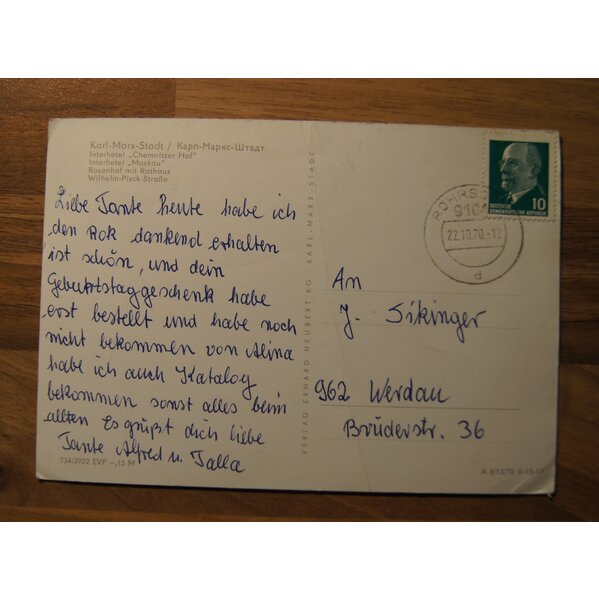 Karl-Marx-Stadt / Карл-Маркс-Штадт
Interhotel „Chemnitzer Hof"
Interhotel „Moskau"
Rosenhof mit Rathaus
Wilhelm-Pieck-Straße
Liebe Tante heute habe ich
den Rok dankend erhalten
ist schön, und dein
Geburtstaggeschenk habe
erst bestellt und habe noch
nicht bekommen von Alina
habe ich auch Katalog
bekommen sonst alles beim
allten Es grüßt dich liebe
Tante Alfred u. Talla
734/2922 EVP –,15 M
VERLAG ERHARD NEUBERT KG · KARL-MARX-STADT
10
DEUTSCHE
DEMOKRATISCHE REPUBLIK
22.10.70.-12
d
An
J. Sikinger
962 Werdau
Brüderstr. 36